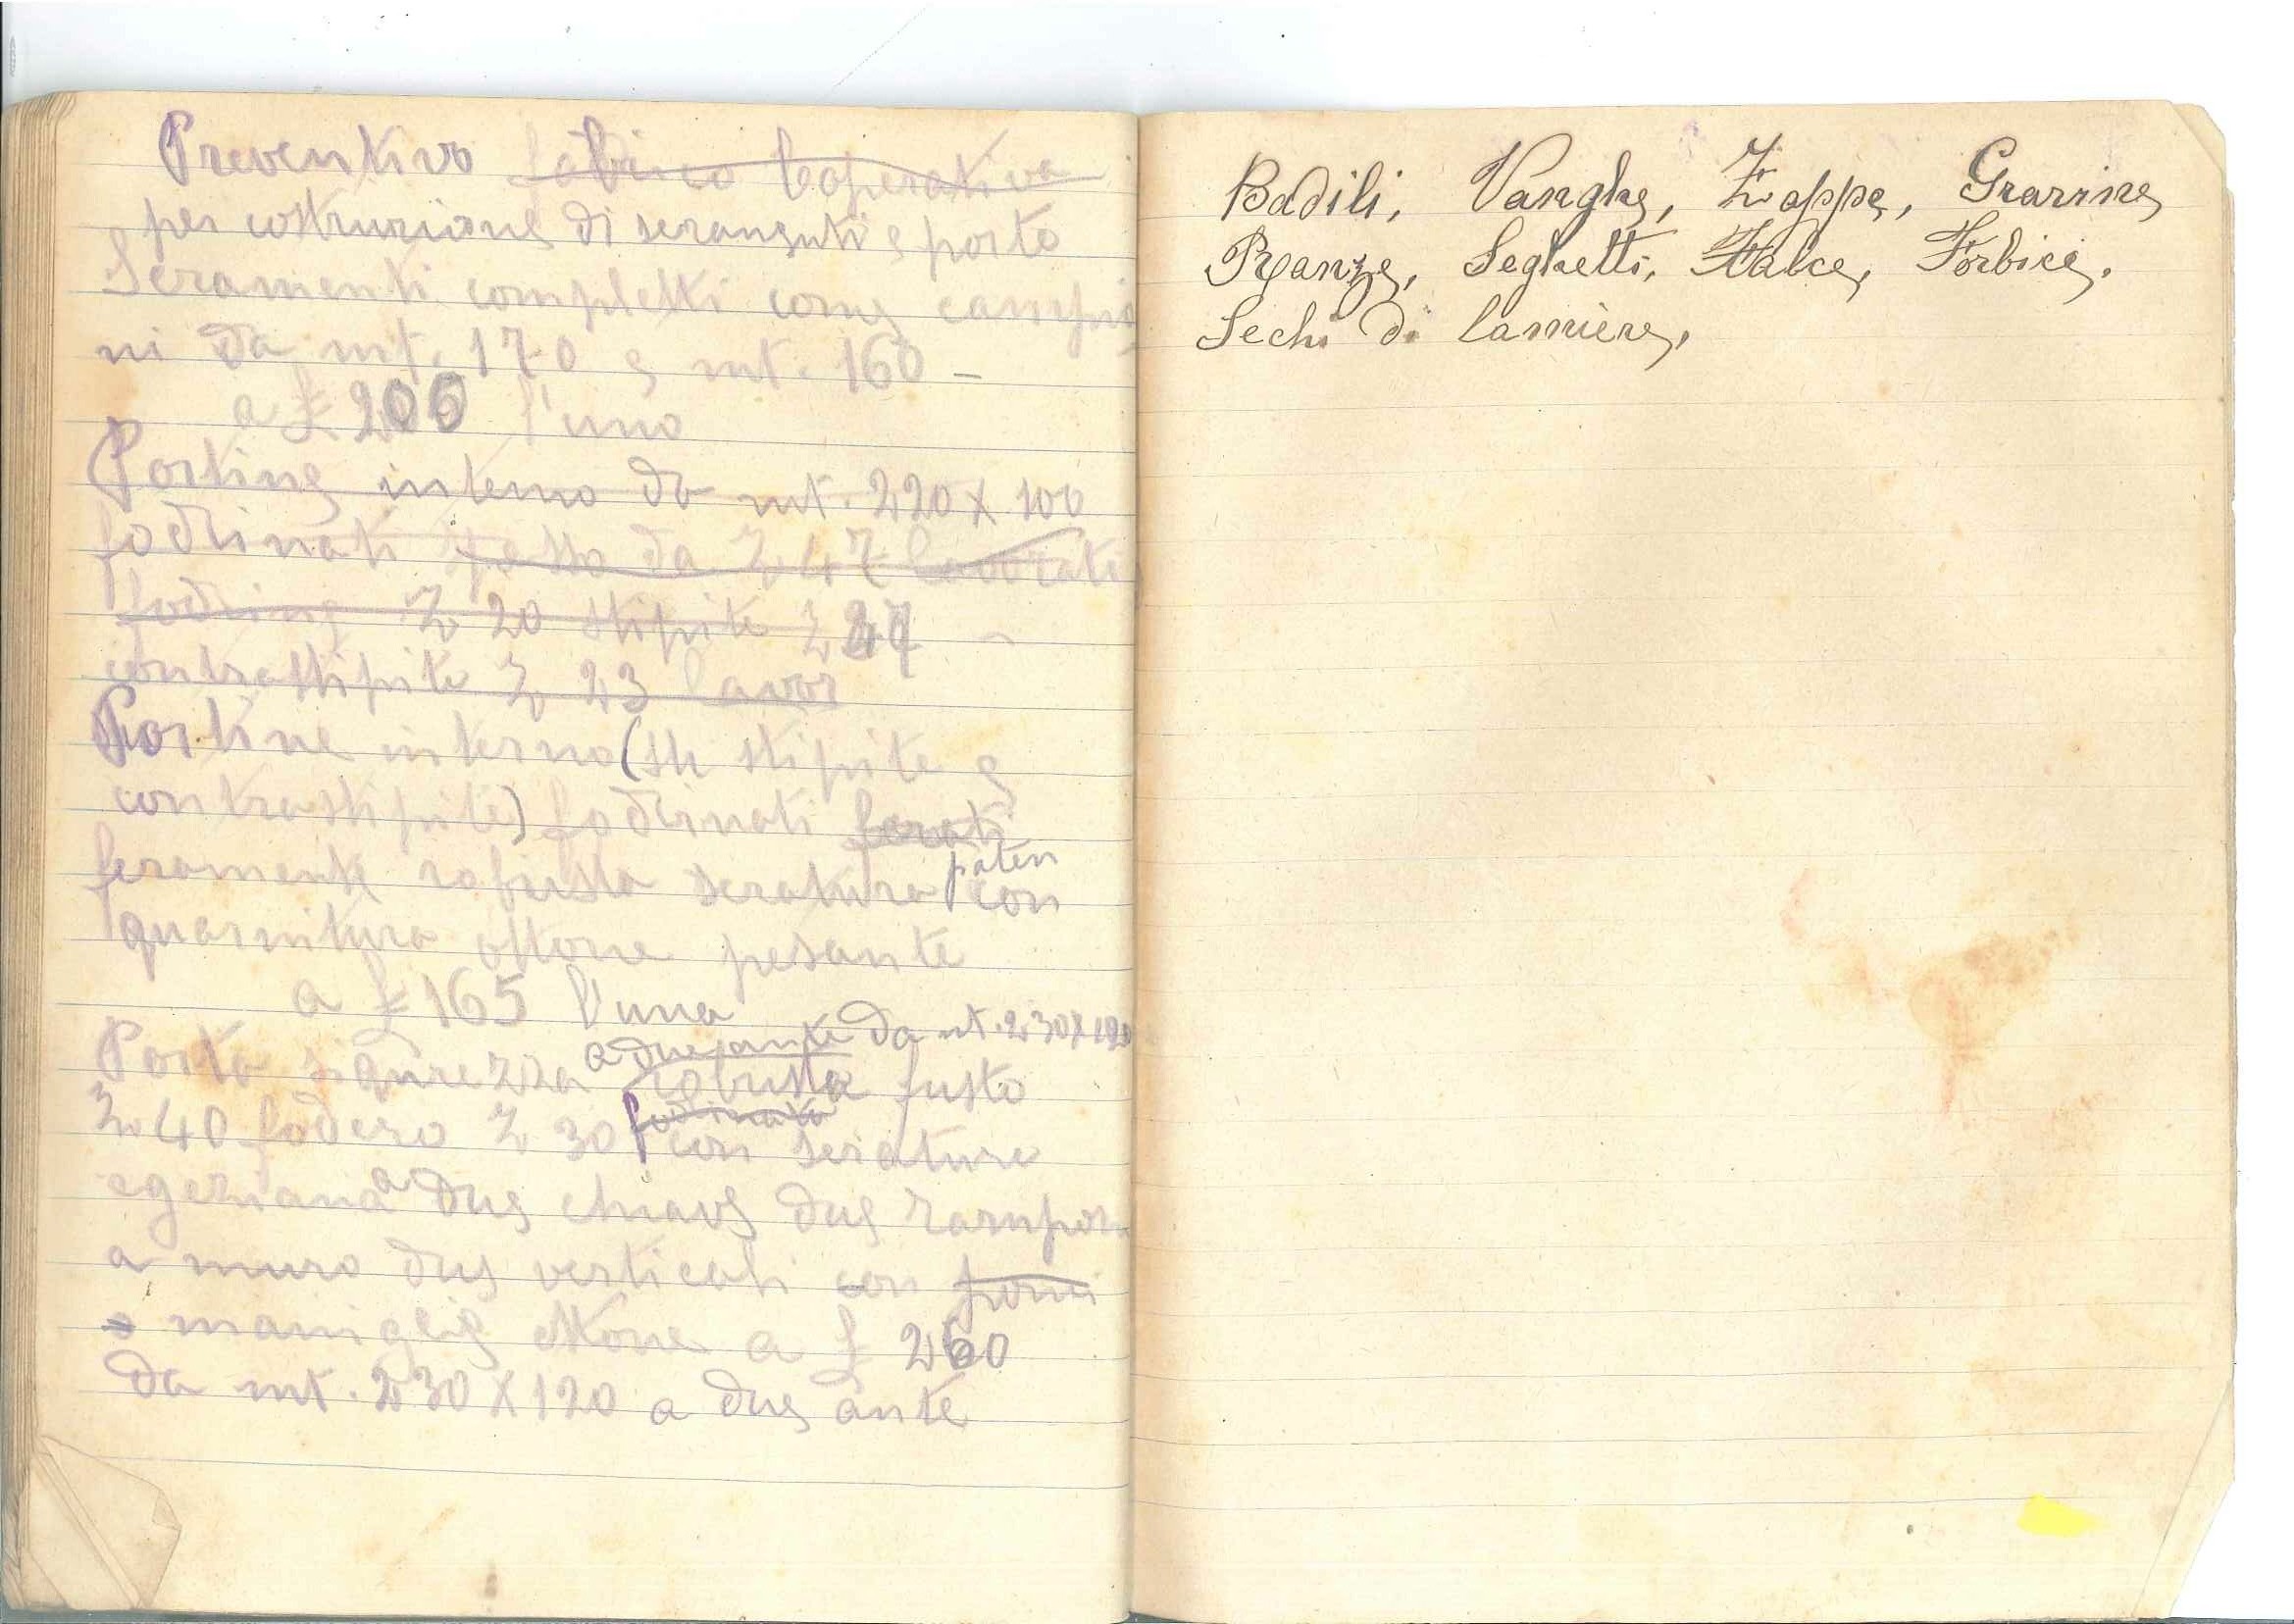 Preventivo fabrico Coperativa
per costruzione di seramenti e porte
Seramenti completti come campio
ni da mt. 170 e mt. 160 -
a £ 200 l'uno
Portine interno da mt. 220 X 100
fodrinati fatto da Z 47 lavorati
fodrine Z 20 stipite Z
contrastipite Z 23 lavor
Portine interno (sti stipite e
contrastipite) fodrinati ferati
feramente robusta seratura paten con
guarnitura ottone pesante
a £ 165 l'una
a due ante da mt. 230 X 120
Porta sigurezza robusta fusto
Z 40 fodero Z 30 fodrinata con serature
a due chiave due
a muro due verticali con pomi
maniglie ottone a £ 260
da mt. 230 X 120 a due ante
Badili, Vanghe, Zappe, Gravine
Ranze, Seghetti, Falce, Forbice,
Sechi di lamiere,